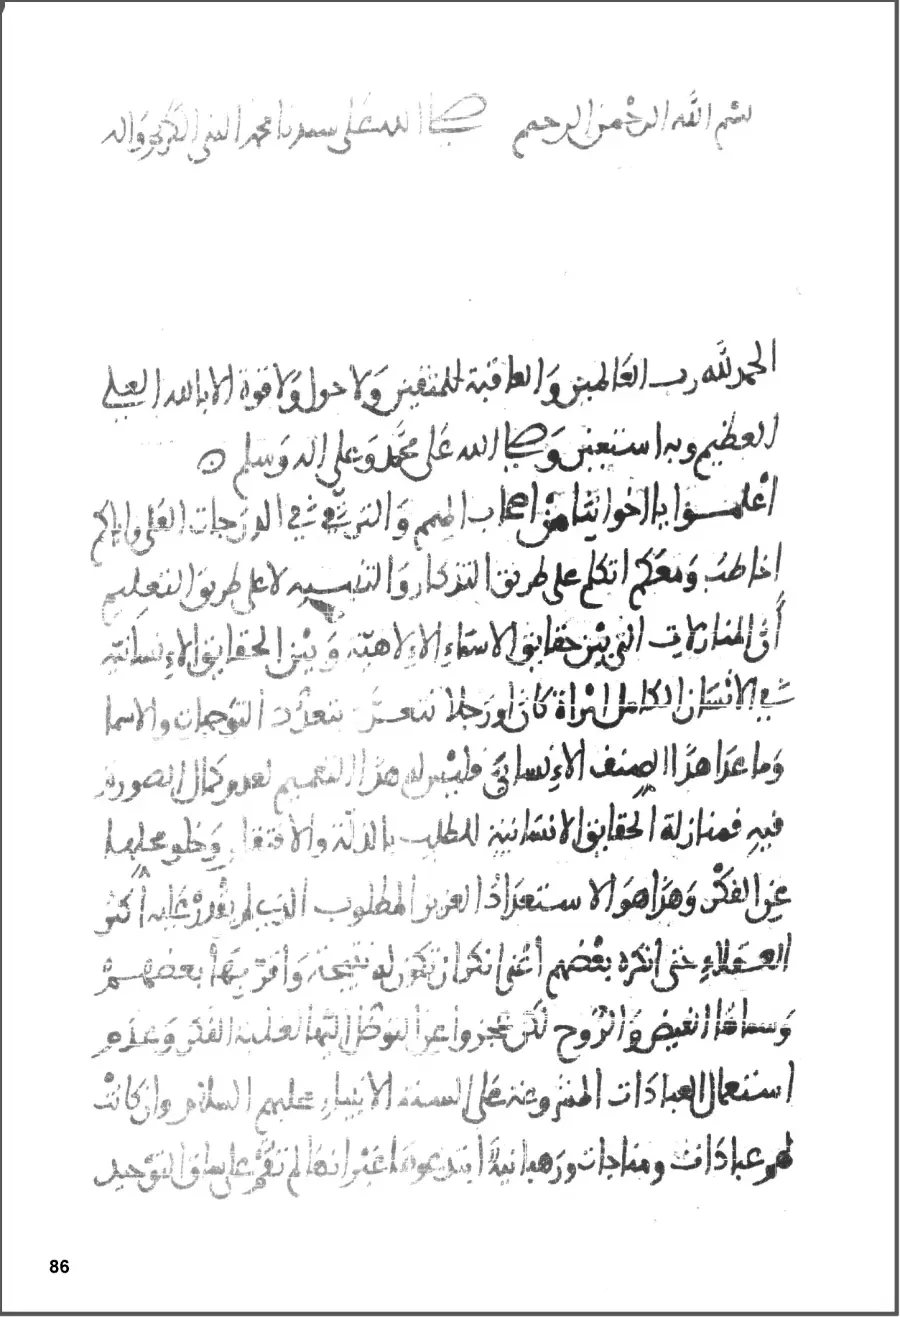 بسم الله الرحمن الرحيم صلى الله على سيدنا محمد النبي الكريم واله
الحمد لله رب العالمين والعاقبة للمتقين ولا حول ولا قوة الا بالله العلي
العظيم وبه استعين وصلى الله على محمد وعلى اله وسلم
اعلموا يا اخواننا من اصحاب الهمم والترقي في الدرجات العلى واياكم
اخاطب ومعكم اتكلم على طريق التذكار والتنبيه لا على طريق التعليم
أن المنازلات التي بين حقايق الاسماء الإلاهية وبين الحقايق الإنسانية
في الانسان الكامل امرأة كان او رجلا تتعدد بتعدد التوجهات والاسما
وما عدا هذا الصنف الإنساني فليس له هذا التعميم لعدم كمال الصورة
فيه فمنازلة الحقايق الانسانية للطلب بالذلة والافتقار وخلو محلها
عن الفكر وهذا هو الاستعداد العزيز المطلوب الذي لم يقدر عليه أكثر
العقلاء حتى انكره بعضهم أعني انكر ان تكون له نتيجة واقر بها بعضهم
وسماها الفيض والروح لكن عجزوا عن التوصل اليها لغلبة الفكر وعدم
استعمال العبادات المشروعة على السنة الانبياء عليهم السلام وان كانت
لهم عبادات ومناجات ورهبانية ابتدعوها غير انها لم تقم على ساق التوحيد
86